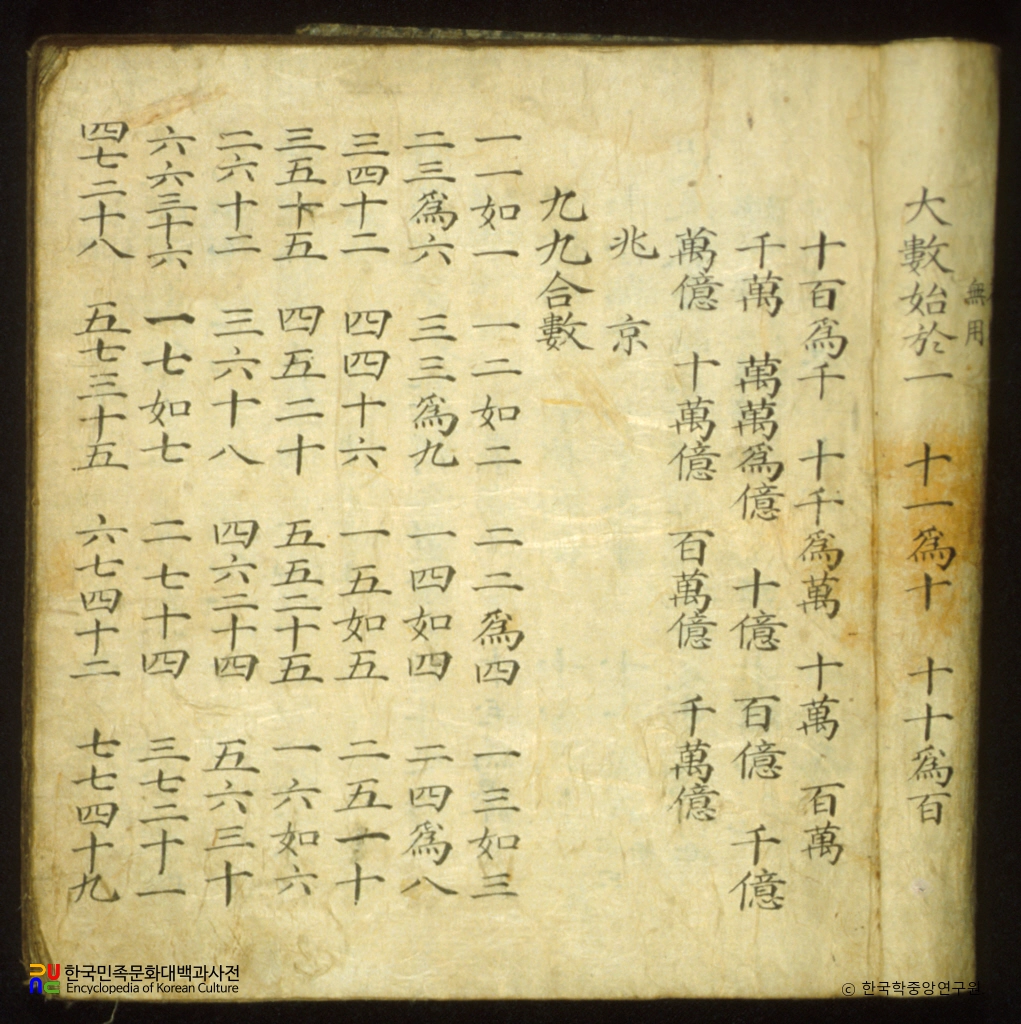 無用
大數始於一 十一爲十 十十爲百
十百爲千 十千爲萬 十萬 百萬
千萬 萬萬爲億 十億 百億 千億
萬億 十萬億 百萬億 千萬億
兆 京
九九合數
一一如一 一二如二 二二爲四 一三如三
二三爲六 三三爲九 一四如四 二四爲八
三四十二 四四十六 一五如五 二五一十
三五十五 四五二十 五五二十五 一六如六
二六十二 三六十八 四六二十四 五六三十
六六三十六 一七如七 二七十四 三七二十一
四七二十八 五七三十五 六七四十二 七七四十九
한국민족문화대백과사전
Encyclopedia of Korean Culture
© 한국학중앙연구원